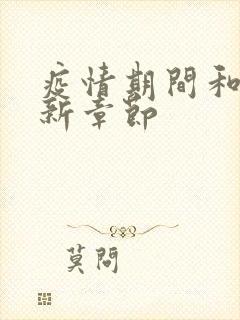 疫情期間和
新章節
莫問